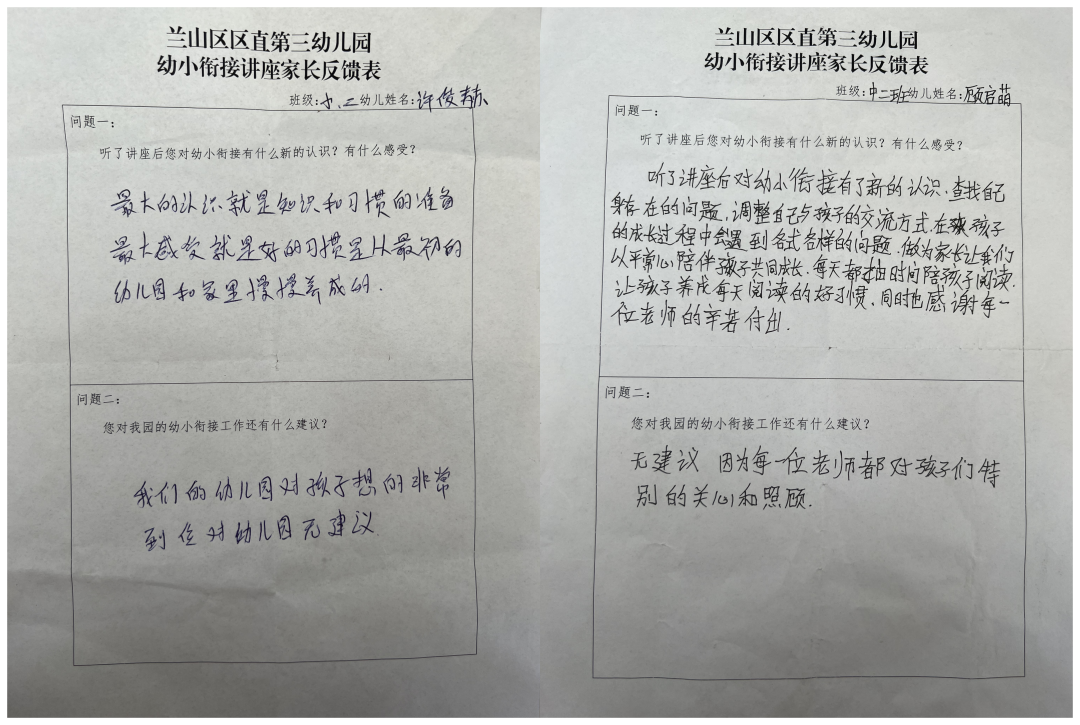 兰山区区直第三幼儿园
幼小衔接讲座家长反馈表
班级:小、二幼儿姓名:许俊
问题一：
听了讲座后您对幼小衔接有什么新的认识？有什么感受？
最大的认识就是知识和习惯的准备
最大感受就是好的习惯是从最初的
幼儿园和家里慢慢养成的.
问题二：
您对我园的幼小衔接工作还有什么建议？
我们的幼儿园对孩子想的非常
到位对幼儿园无建议
兰山区区直第三幼儿园
幼小衔接讲座家长反馈表
班级:中二班幼儿姓名:顾启萌
问题一：
听了讲座后您对幼小衔接有什么新的认识？有什么感受？
听了讲座后对幼小衔接有了新的认识.查找自己
身存在的问题,调整自己与孩子的交流方式.在孩子
的成长过程中会遇到各式各样的问题.做为家长让我们
以平常心陪伴孩子共同成长.每天都抽时间陪孩子阅读.
让孩子养成每天阅读的好习惯、同时也感谢每一
位老师的辛苦付出.
问题二：
您对我园的幼小衔接工作还有什么建议？
无建议 因为每一位老师都对孩子们特
别的关心和照顾.